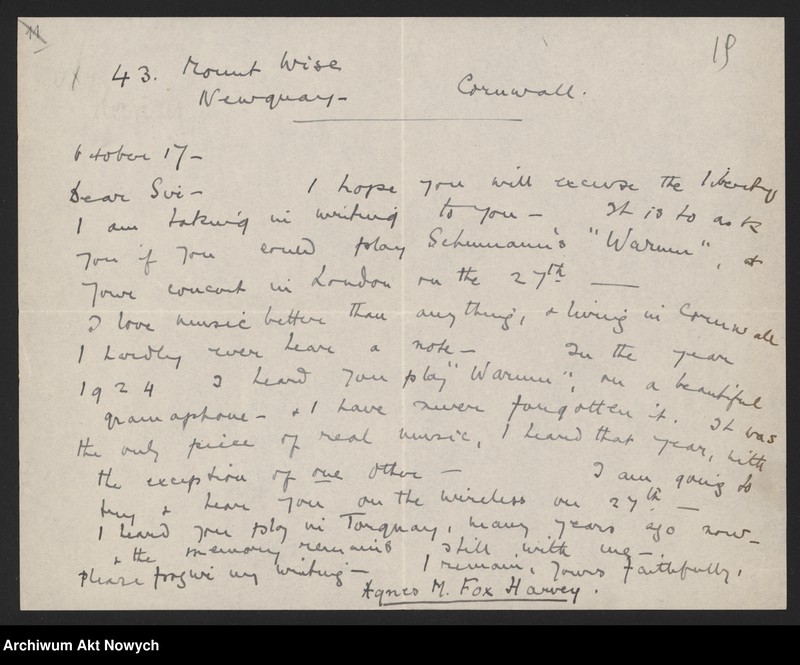 11
19
43. Mount Wise
Newquay — Cornwall.
October 17 —
Dear Sir — I hope you will excuse the liberty
I am taking in writing to you — It is to ask
you if you could play Schumann's "Warum", at
your concert in London on the 27th —
I love music better than anything, & living in Cornwall
I hardly ever hear a note — In the year
1924 I heard you play "Warum", on a beautiful
gramophone — & I have never forgotten it. It was
the only piece of real music, I heard that year, with
the exception of one other — I am going to
try & hear you on the wireless on 27th —
I heard you play in Torquay, many years ago now —
& the memory remains still with me —
please forgive my writing — I remain, yours faithfully,
Agnes M. Fox Harvey.
Archiwum Akt Nowych